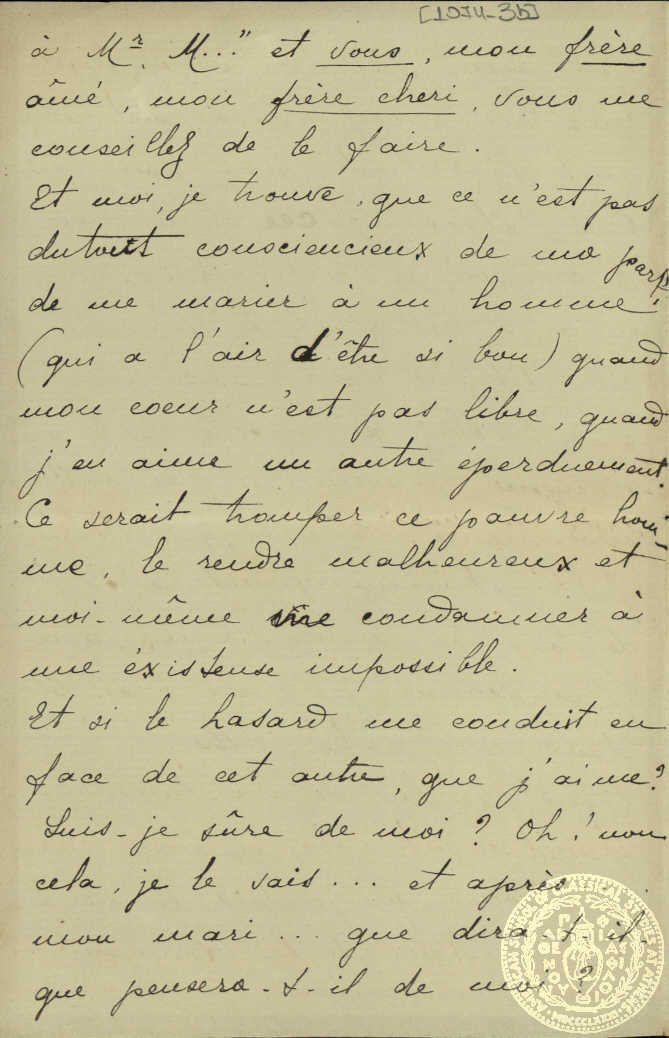 [1074-3b]
à Mr. M..." et vous, mon frère
âmé, mon frère cheri, vous me
conseillez de le faire.
Et moi, je trouve, que ce n'est pas
dutout consciencieux de ma part
de me marier à un homme,
(qui a l'air d'être si bon) quand
mon coeur n'est pas libre, quand
j'en aime un autre éperduement.
Ce serait tromper ce pauvre hom-
me, le rendre malheureux et
moi-même me condamner à
une éxistense impossible.
Et si le hasard me conduit en
face de cet autre, que j'aime?
Suis-je sûre de moi? Oh! non
cela, je le sais... et après...
mon mari... que dira-t-il,
que pensera-t-il de moi?
AMERICAN SCHOOL OF CLASSICAL STUDIES AT ATHENS
MDCCCLXXXI